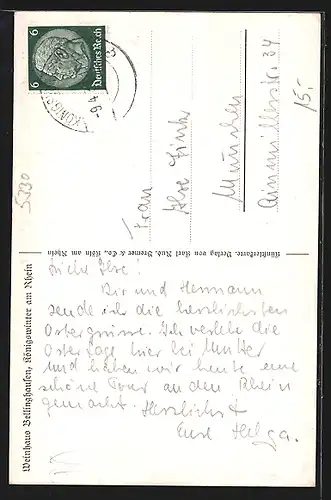 Weinhaus Bellinghausen, Königswinter am Rhein
Künstlerkarte. Verlag von Karl Rud. Bremer & Co., Köln am Rhein
Deutsches Reich
6 6
KÖNIGS
Liebe Ilse!
Dir und Hermann
sende ich die herzlichsten
Ostergrüsse. Ich verlebe die
Ostertage hier bei Mutter
und haben wir heute eine
schöne Tour an den Rhein
gemacht. Herzlichst
Eure Helga.
Frau
Ilse
München
Ainmillerstr. 34
15,-
5330